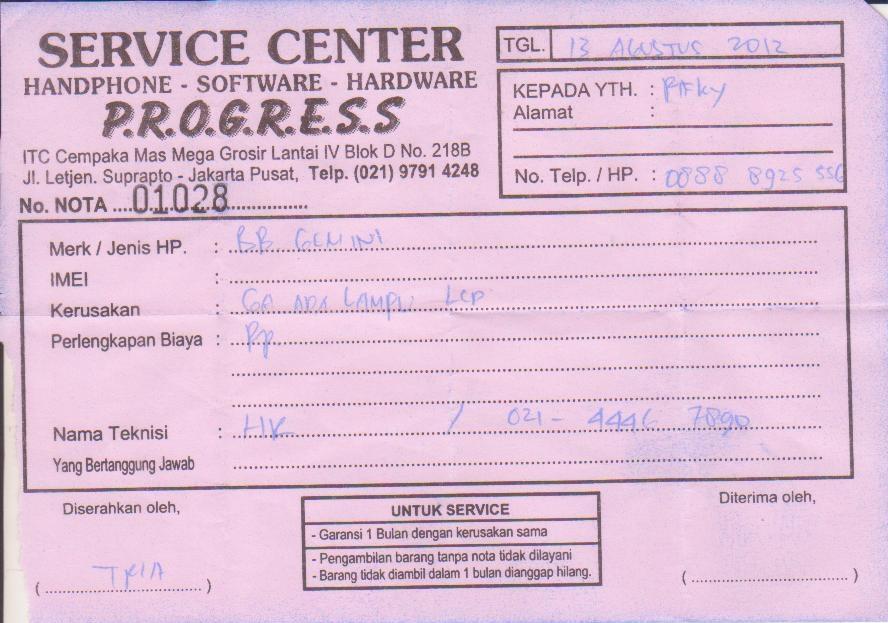 SERVICE CENTER
HANDPHONE - SOFTWARE - HARDWARE
P.R.O.G.R.E.S.S
ITC Cempaka Mas Mega Grosir Lantai IV Blok D No. 218B
Jl. Letjen. Suprapto - Jakarta Pusat, Telp. (021) 9791 4248
No. NOTA 01028
TGL. 13 AGUSTUS 2012
KEPADA YTH. :
Alamat :
No. Telp. / HP. : 0888 8925 556
Merk / Jenis HP. : BB GEMINI
IMEI :
Kerusakan : GA ADA LAMPU LCD
Perlengkapan Biaya : Rp
Nama Teknisi : / 021 - 4446 7890
Yang Bertanggung Jawab
Diserahkan oleh,
UNTUK SERVICE
- Garansi 1 Bulan dengan kerusakan sama
- Pengambilan barang tanpa nota tidak dilayani
- Barang tidak diambil dalam 1 bulan dianggap hilang.
Diterima oleh,